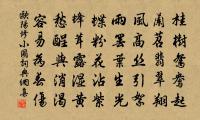 桂樹鴛鴦起
蘭苕翡翠翔
風高絲引絮
雨罷葉生光
蝶粉花沾紫
蜂茸露濕黃
愁酲與消渴
容易為春傷
歐陽修小圃詞典網集